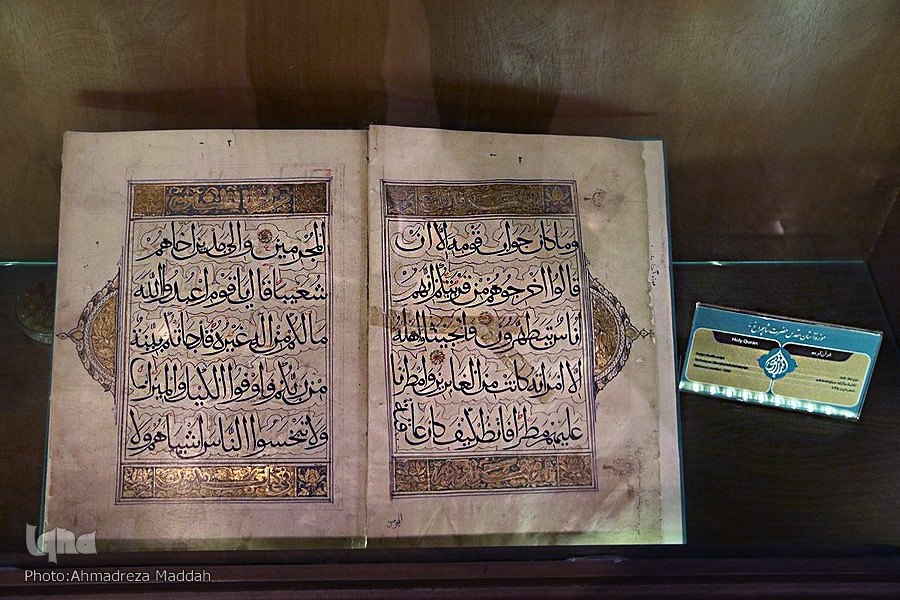 ٢
وما كان جواب قومه الا ان
قالوا اخرجوهم من قريتكم انهم
اناس يتطهرون فانجيناه واهله
الا امراته كانت من الغابرين وامطرنا
عليهم مطرا فانظر كيف كان عاقبة
المجرمين
٢
المجرمين والى مدين اخاهم
شعيبا قال يا قوم اعبدوا الله
ما لكم من اله غيره قد جاءتكم بينة
من ربكم فاوفوا الكيل والميزان
ولا تبخسوا الناس اشياءهم ولا
موزه آستان مقدس حضرت شاهچراغ (ع)
Holy Quran
قرآن کریم
iqna
Photo:Ahmadreza Maddah